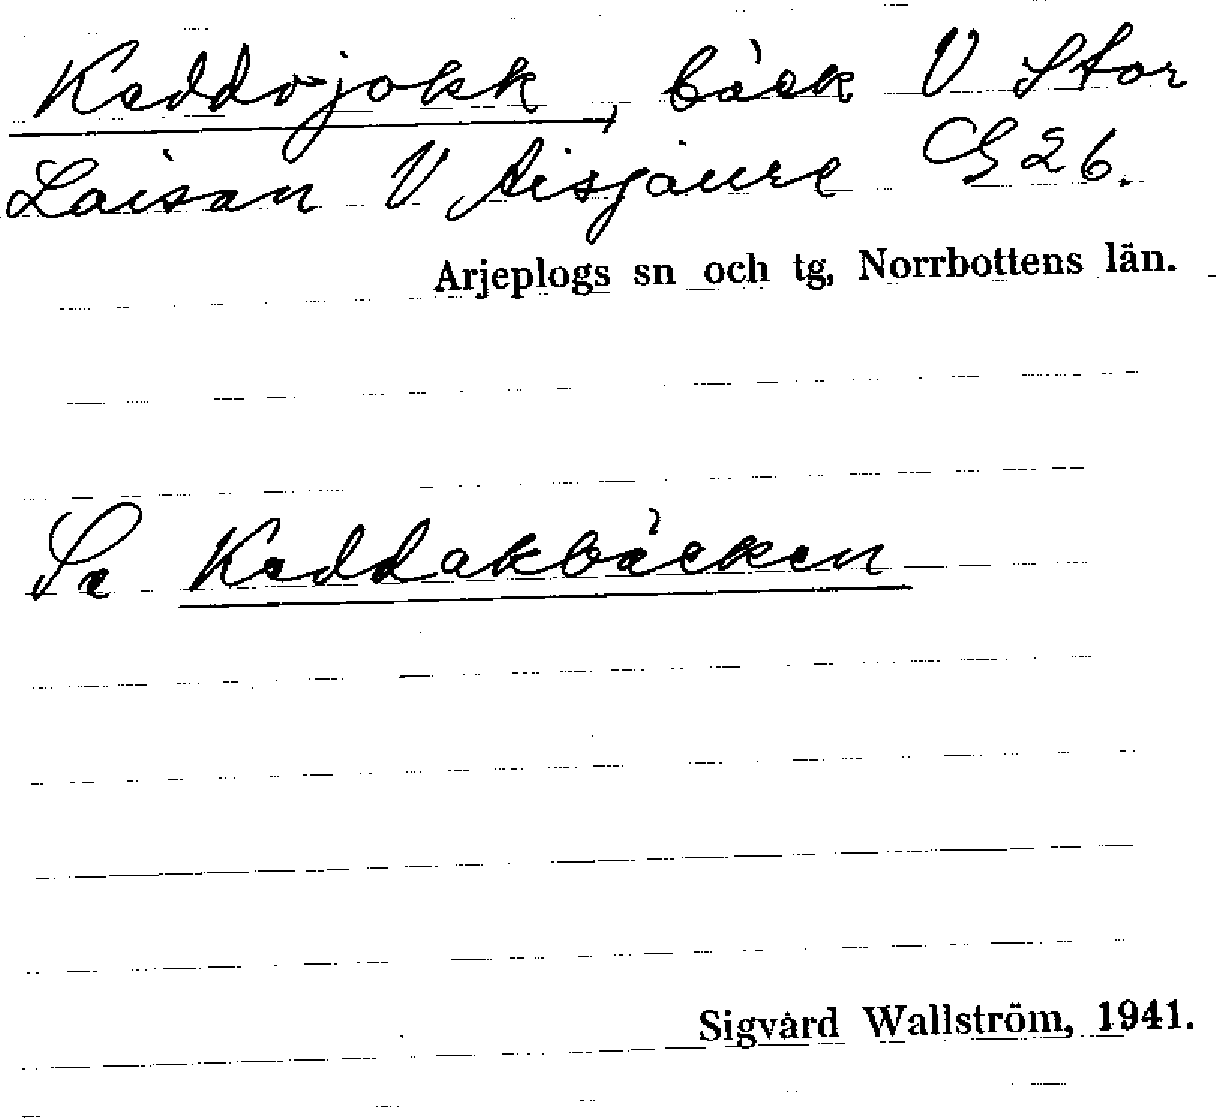 Keddojokk, bäck V Stor
Laisan V Aisjaure GE 26.
Arjeplogs sn och tg, Norrbottens län.
Se Keddakbäcken
Sigvard Wallström, 1941.